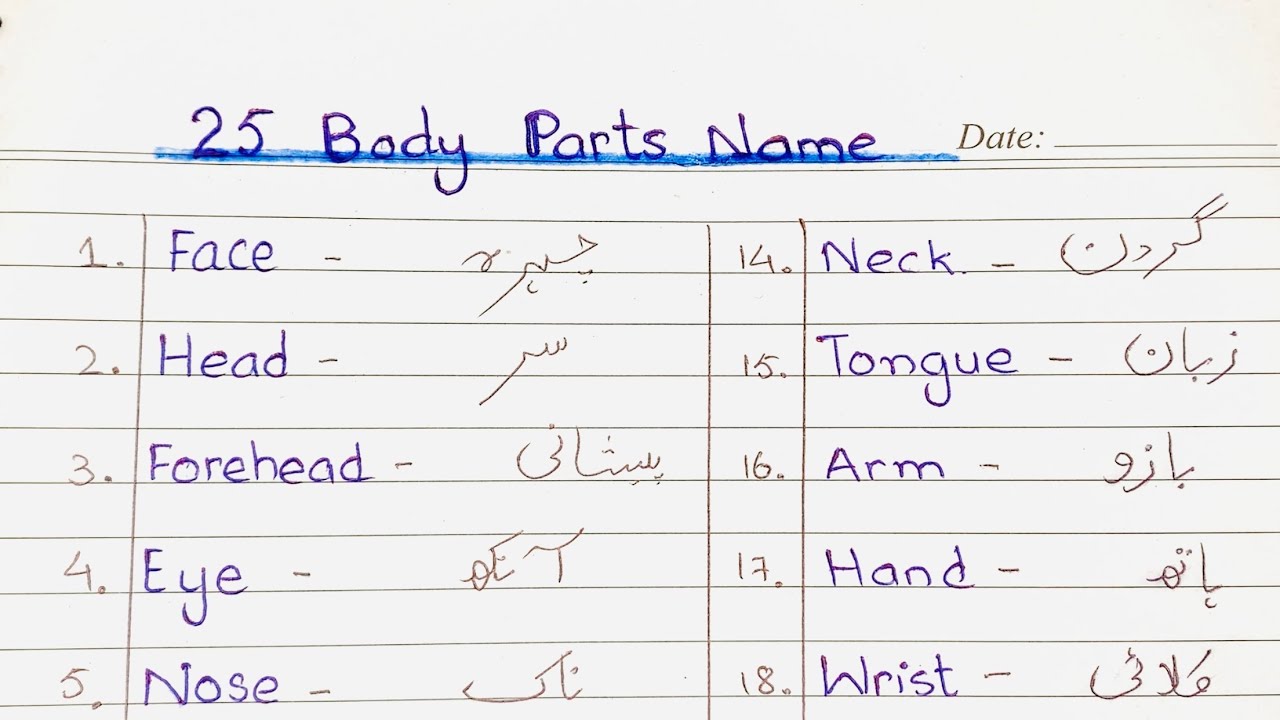 25 Body Parts Name Date:
1. Face - چہرہ 14. Neck. - گردن
2. Head - سر 15. Tongue - زبان
3. Forehead - پیشانی 16. Arm - بازو
4. Eye - آنکھ 17. Hand - ہاتھ
5. Nose - ناک 18. Wrist - کلائی